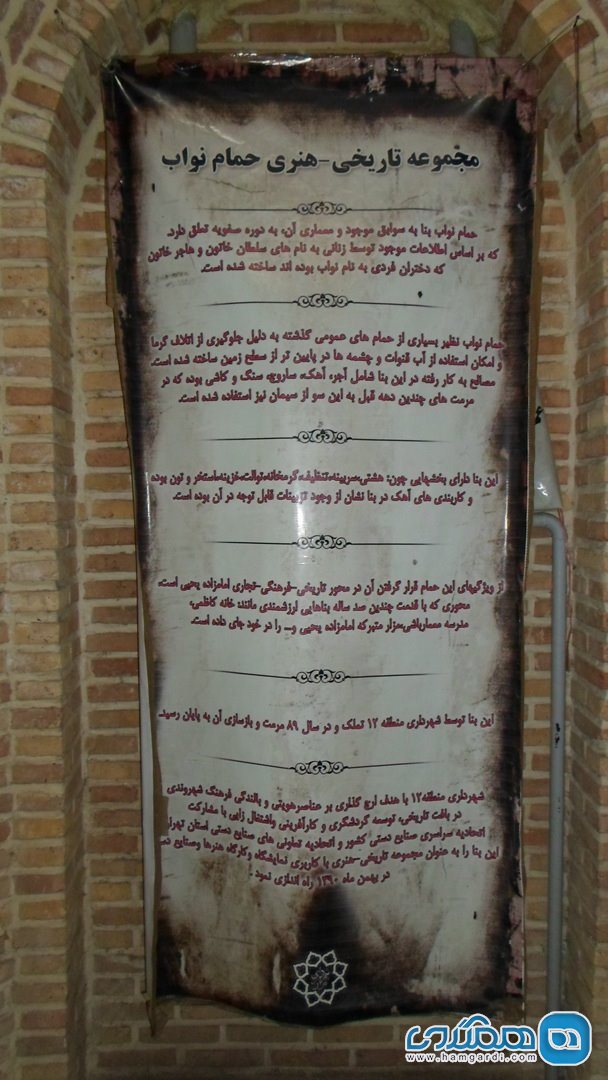 مجموعه تاریخی-هنری حمام نواب
حمام نواب بنا به سوابق موجود و معماری آن، به دوره صفویه تعلق دارد.
که بر اساس اطلاعات موجود توسط زنانی به نام های سلطان خاتون و هاجر خاتون
که دختران فردی به نام نواب بوده اند ساخته شده است.
حمام نواب نظیر بسیاری از حمام های عمومی گذشته به دلیل جلوگیری از اتلاف گرما
و امکان استفاده از آب قنوات و چشمه ها در پایین تر از سطح زمین ساخته شده است.
مصالح به کار رفته در این بنا شامل آجر، آهک، ساروج، سنگ و کاشی بوده که در
مرمت های چندین دهه قبل به این سو از سیمان نیز استفاده شده است.
این بنا دارای بخشهایی چون: هشتی،سربینه،تنظیف،گرمخانه،توالت،خزینه،استخر و تون بوده
و کاربندی های آهک در بنا نشان از وجود تزیینات قابل توجه در آن بوده است.
از ویژگیهای این حمام قرار گرفتن آن در محور تاریخی-فرهنگی-تجاری امامزاده یحیی است.
محوری که با قدمت چندین صد ساله بناهایی ارزشمندی مانند: خانه کاظمی،
مدرسه معمارباشی،مزار متبرکه امامزاده یحیی و... را در خود جای داده است.
این بنا توسط شهرداری منطقه ۱۲ تملک و در سال ۸۹ مرمت و بازسازی آن به پایان رسید.
شهرداری منطقه۱۲ با هدف ارج گذاری بر عناصرهویتی و بالندگی فرهنگ شهروندی
در بافت تاریخی، توسعه گردشگری و کارآفرینی واشتغال زایی با مشارکت
اتحادیه سراسری صنایع دستی کشور و اتحادیه تعاونی های صنایع دستی استان تهران
این بنا را به عنوان مجموعه تاریخی-هنری با کاربری نمایشگاه وکارگاه هنرها وصنایع
در بهمن ماه ۱۳۹۰ راه اندازی نمود.
همگردی
www.hamgardi.com